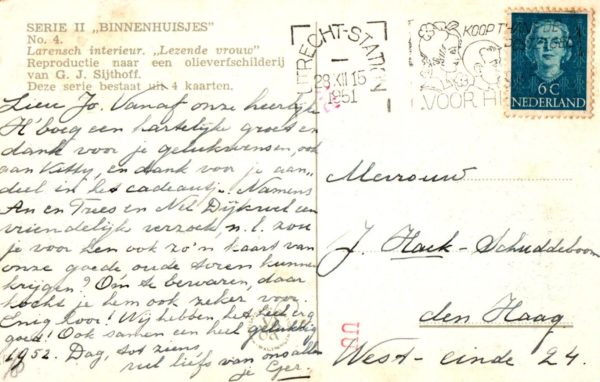 SERIE II „BINNENHUISJES”
No. 4.
Larensch interieur. „Lezende vrouw”
Reproductie naar een olieverfschilderij
van G. J. Sijthoff.
Deze serie bestaat uit 4 kaarten.
UTRECHT-STATION
28 XII 15
1951
KOOPT
VOOR
6 C
NEDERLAND
Lieve Jo. Vanaf onze heerlijke
een hartelijke groet en
dank voor je gelukwensen, ook
aan Kitty, en dank voor je aan-
deel in het cadeautje. Namens
An en Trees en Nel Dijkwel een
vriendelijk verzoek, n.l. zou
je voor hen ook zo'n kaart van
onze goede oude toren kunnen
krijgen? Om te bewaren, daar
kocht je hem ook zeker voor.
Enig hoor! Wij hebben het heel erg
goed! Ook samen een heel gelukkig
1952. Dag, tot ziens,
veel liefs van ons allen
je Ger.
Mevrouw
J. Haek-Schuddeboom
den Haag
West-einde 24.